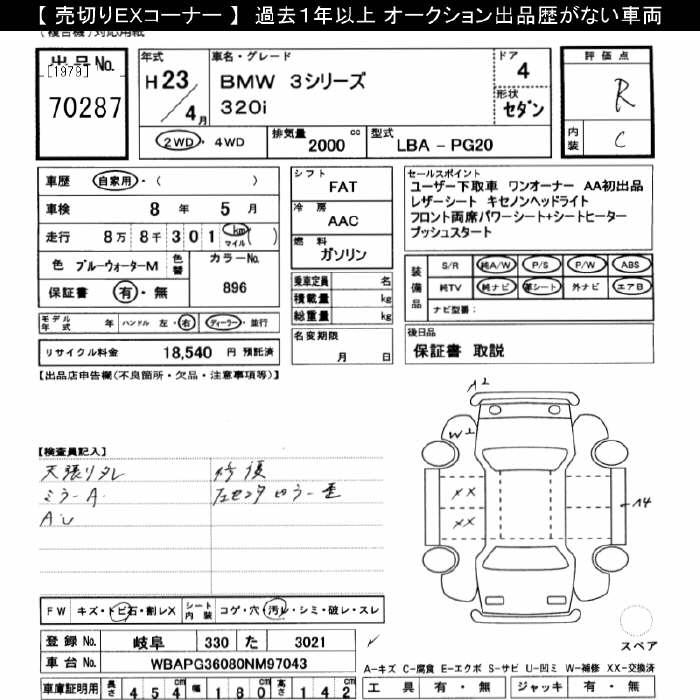 【 売切りEXコーナー 】 過去1年以上 オークション出品歴がない車両
(複合機)対応用紙
出品No.
[1979]
70287
年式
H 23
4月
車名・グレード
BMW 3シリーズ
320i
ドア
4
形状
セダン
評価点
R
内装
C
2WD・4WD
排気量
2000 cc
型式
LBA - PG20
車歴
自家用・( )
車検 8 年 5 月
走行 8万 8千 3 0 1 km マイル ( )
色 ブルーウォーターM 色替
カラーNo.
896
保証書 有・無
シフト
FAT
冷房
AAC
燃料
ガソリン
乗車定員 名
積載量 kg
総重量 kg
セールスポイント
ユーザー下取車 ワンオーナー AA初出品
レザーシート キセノンヘッドライト
フロント両席パワーシート+シートヒーター
プッシュスタート
装備品
S/R 純A/W P/S P/W ABS
純TV 純ナビ 革シート 外ナビ エアB
ナビ型番:
モデル年式 年 ハンドル 左・右 ディーラー・並行
リサイクル料金 18,540 円 預託済
名変期限
月 日
後日品
保証書 取説
【出品店申告欄(不良箇所・欠品・注意事項等)】
A2
W1
XX
XX
A4
【検査員記入】
天張りタレ
ミラーA
AU
修復
左センタピラー歪
FW キズ・トビ石・割レX
シート内装 コゲ・穴・汚レ・シミ・破レ・スレ
登録No. 岐阜 330 た 3021
車台No. WBAPG36080NM97043
車庫証明用 長さ 454 cm 幅 180 cm 高さ 142 cm
スペア
A−キズ C−腐食 E−エクボ S−サビ U−凹ミ W−補修 XX−交換済
工具 有・無 ジャッキ 有・無